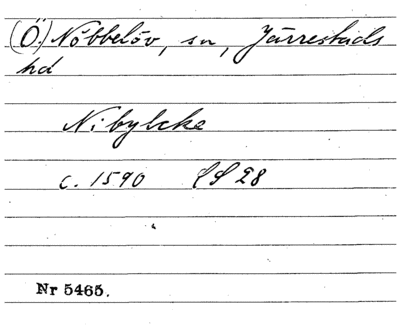 (Ö.) Nöbbelöv, sn, Järrestads
hd
Nibylcke
c. 1590 LS 28
Nr 5465.